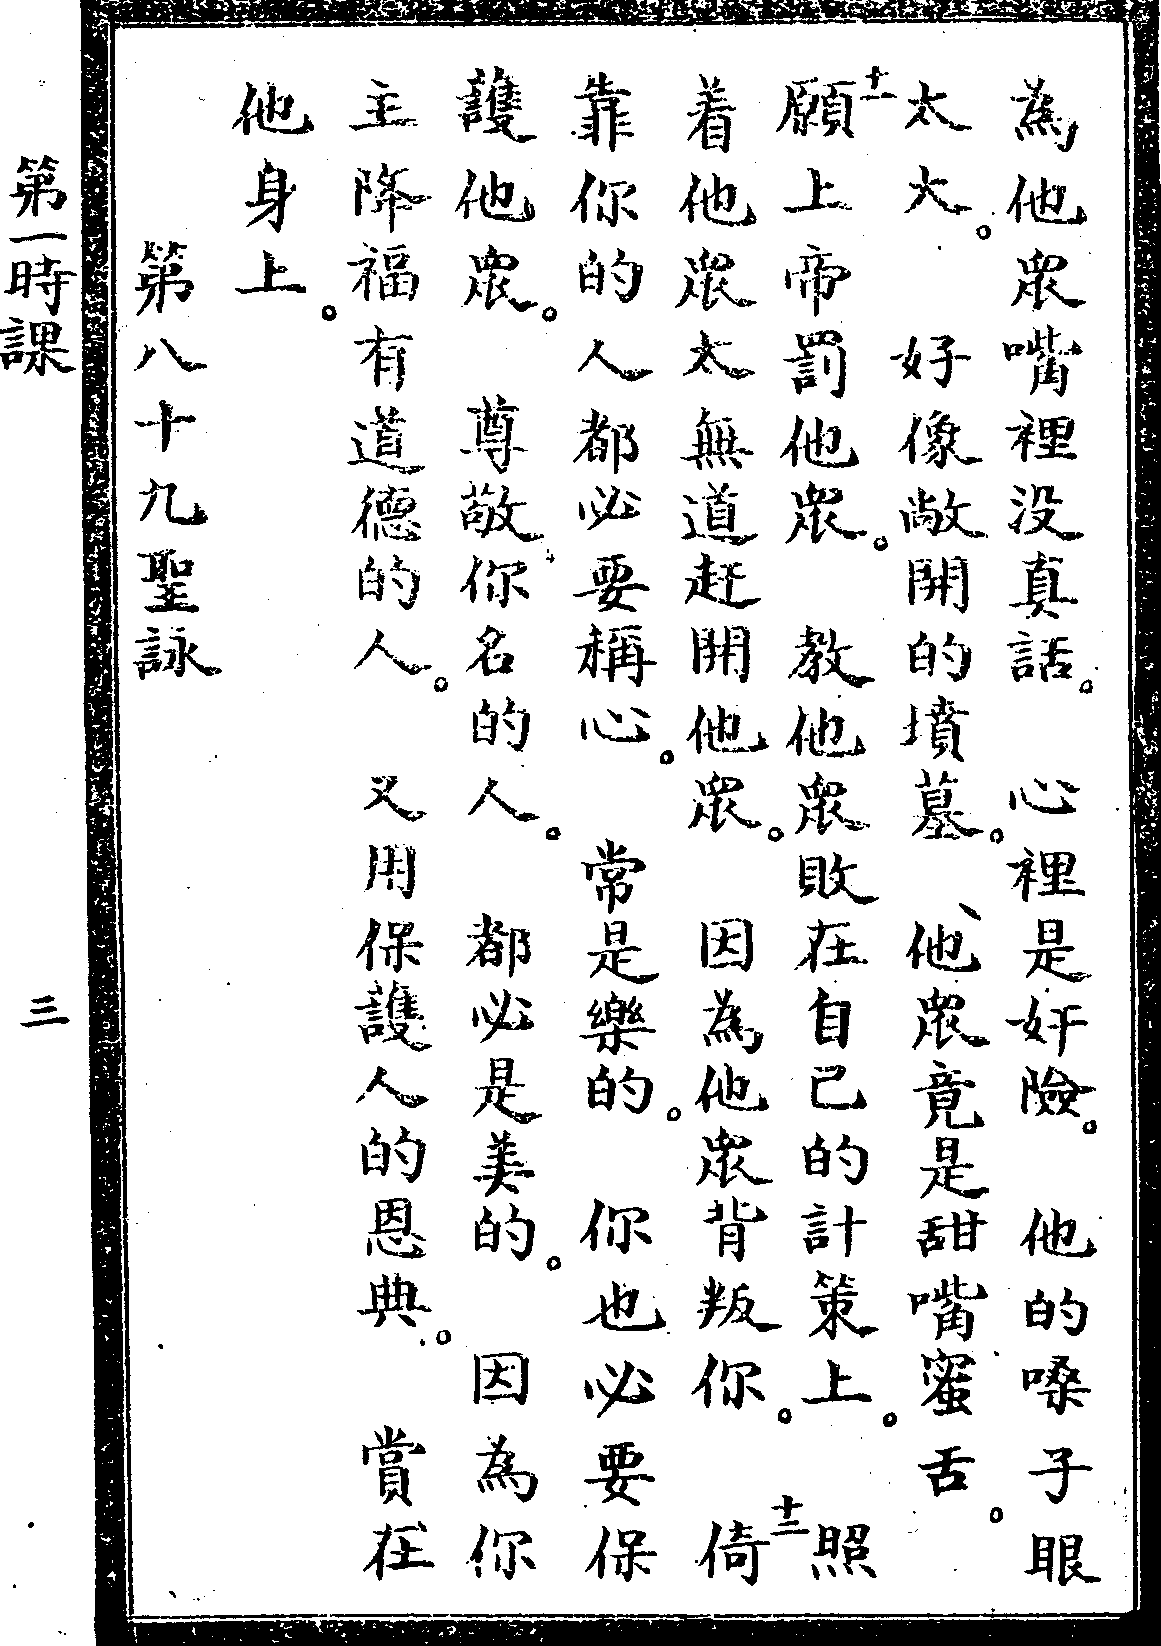 為他眾嘴裡没真話。　心裡是奸險。　他的嗓子眼
太大。　好像敞開的墳墓。　他眾竟是甜嘴蜜舌。
十一願上帝罰他眾。　教他眾敗在自己的計策上。　照
着他眾太無道赶開他眾。　因為他眾背叛你。　十三倚
靠你的人都必要稱心。　常是樂的。　你也必要保
護他眾。　尊敬你名的人。　都必是美的。　因為你
主降福有道德的人。　又用保護人的恩典。　賞在
他身上。
第八十九聖詠
第一時課
三